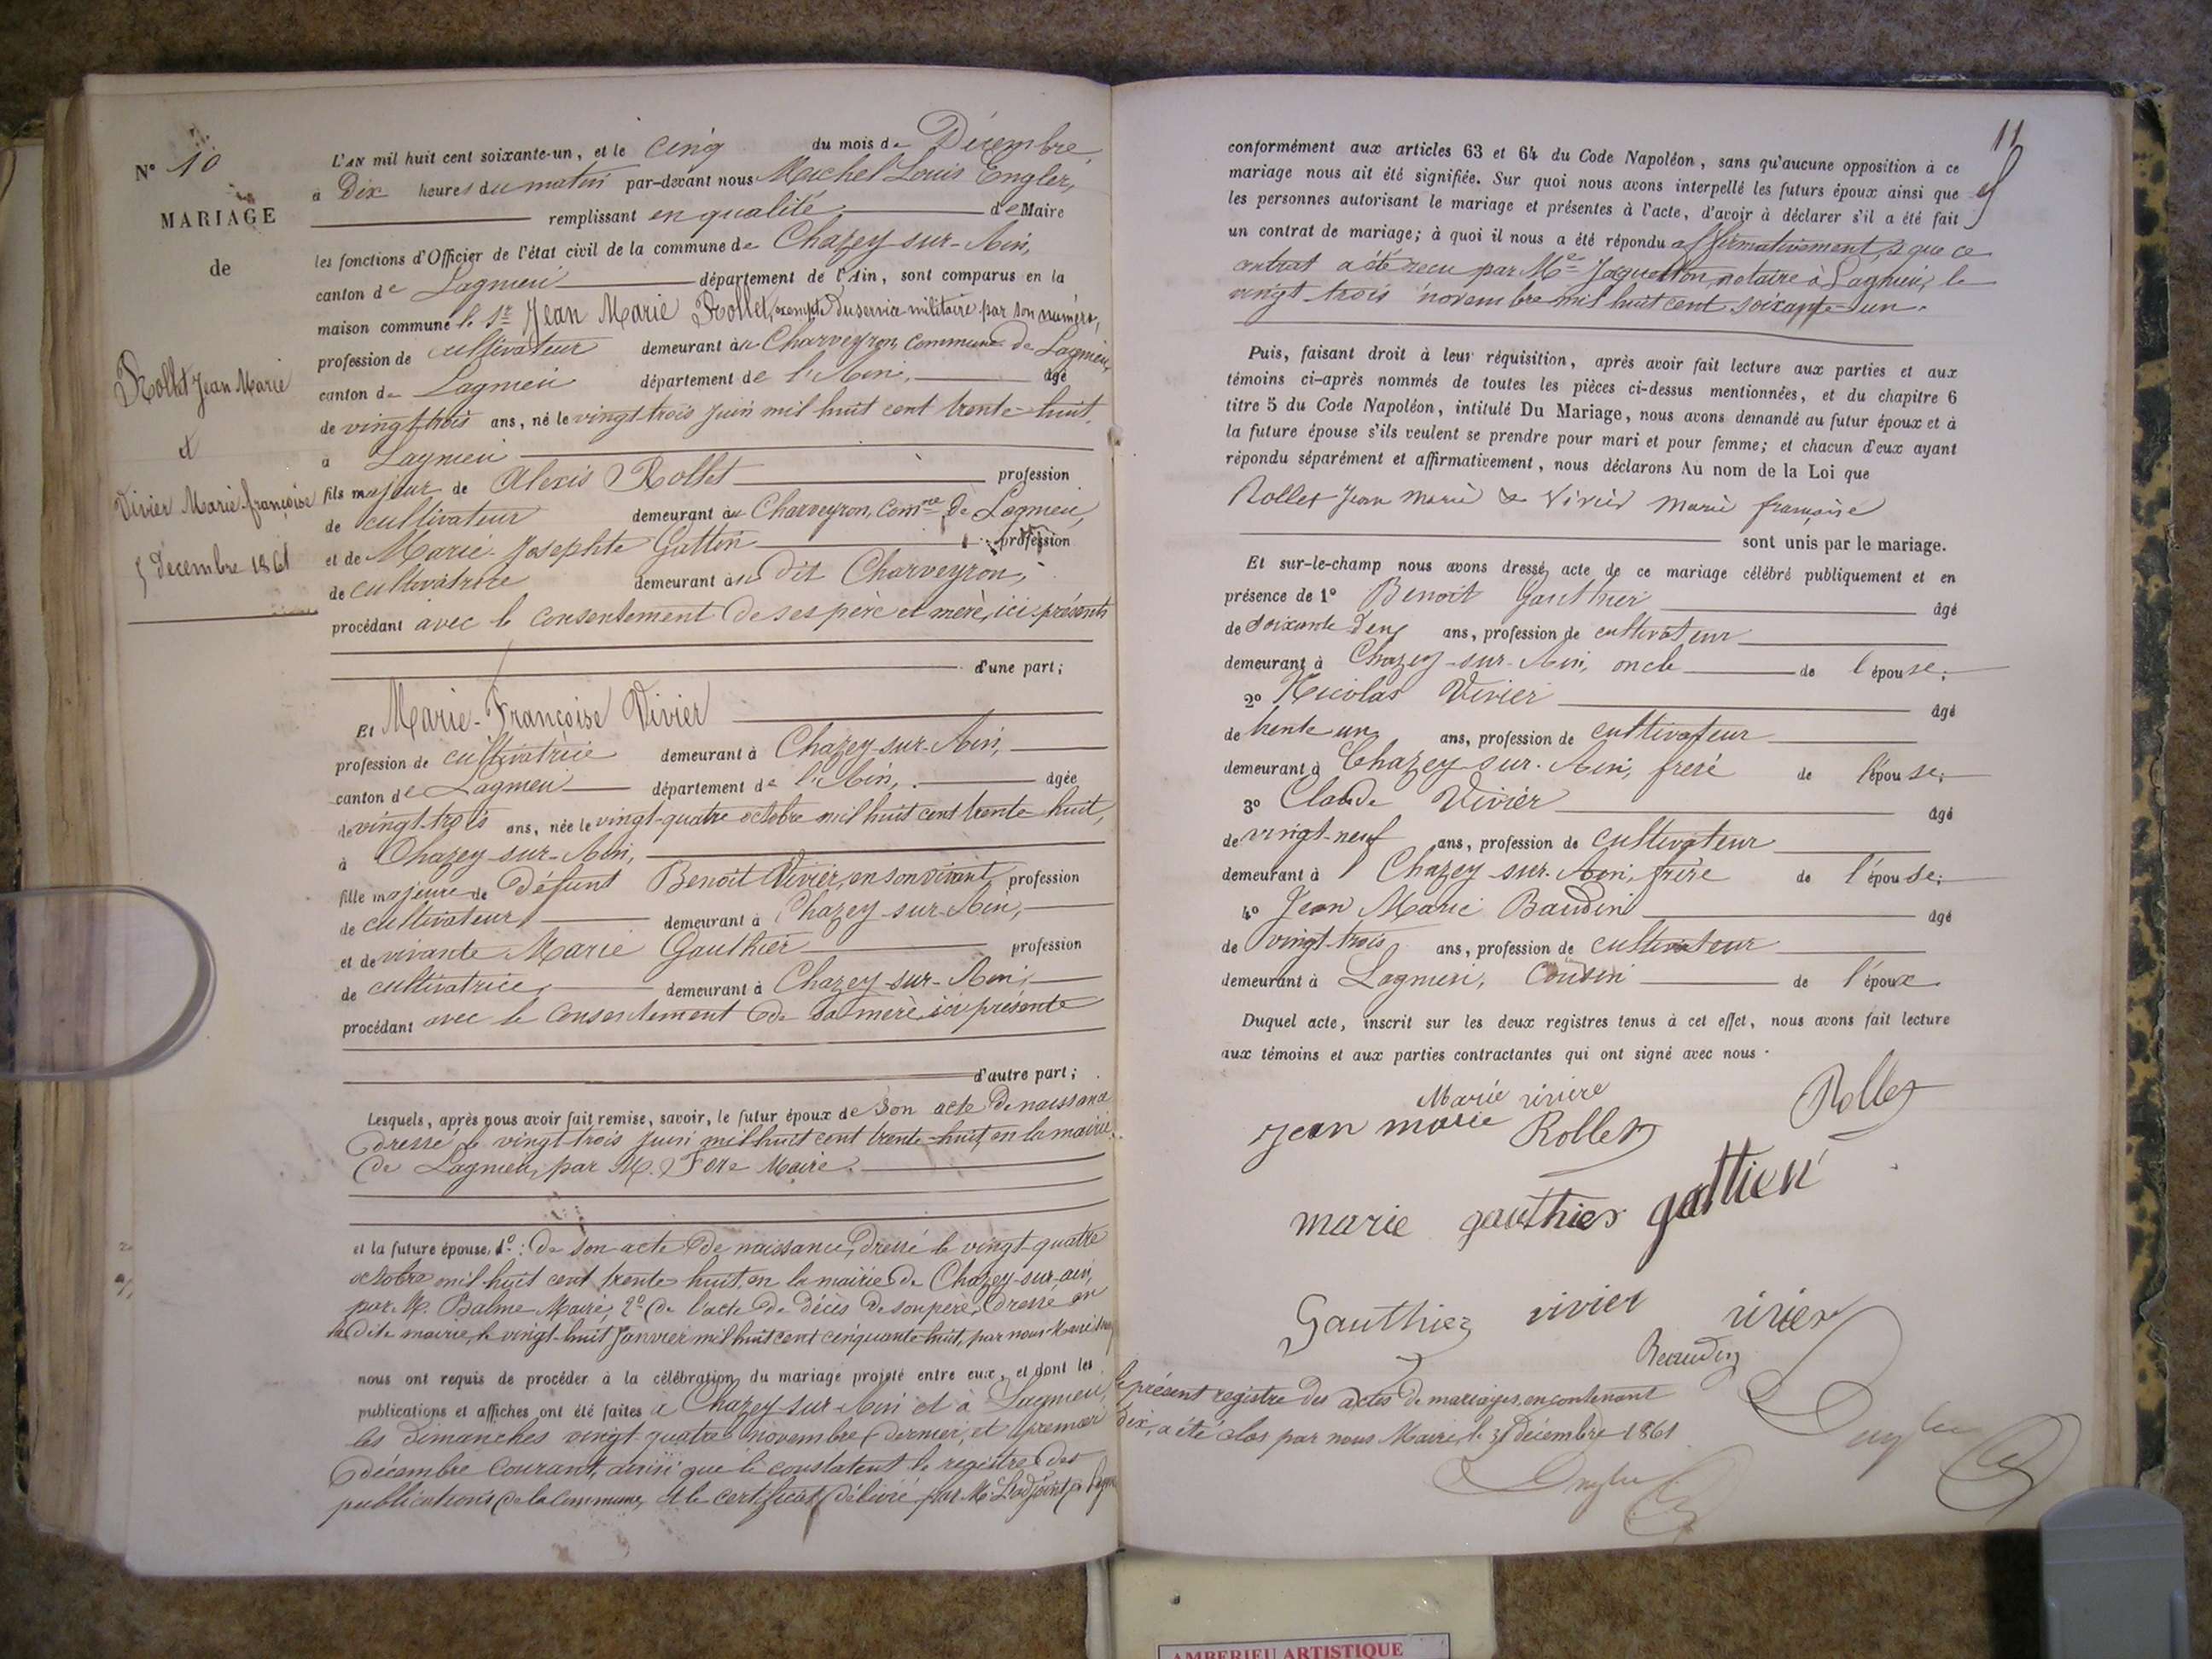 N° 10
MARIAGE
de
Rollet Jean Marie
et
Vivier Marie-françoise
5 Décembre 1861
L'AN mil huit cent soixante-un, et le cinq du mois de Décembre,
à Dix heures du matin par-devant nous Michel Louis Engler,
remplissant en qualité de Maire
les fonctions d'Officier de l'état civil de la commune de Chazey-sur-Ain,
canton de Lagnieu département de l'Ain, sont comparus en la
maison commune le Sr Jean Marie Rollet, exempté du service militaire par son numéro,
profession de cultivateur demeurant au Charveyron, Commune de Lagnieu,
canton de Lagnieu département de l'Ain, âgé
de vingt-trois ans, né le vingt-trois juin mil huit cent trente-huit,
à Lagnieu
fils majeur de Alexis Rollet profession
de cultivateur demeurant au Charveyron, Comne de Lagnieu,
et de Marie-Josephte Gattin profession
de cultivatrice demeurant au dit Charveyron,
procédant avec le consentement de ses père et mère, ici présents
d'une part;
Et Marie-Françoise Vivier
profession de cultivatrice demeurant à Chazey-sur-Ain,
canton de Lagnieu département de l'Ain, âgée
de vingt-trois ans, née le vingt-quatre octobre mil huit cent trente-huit,
à Chazey-sur-Ain,
fille majeure de défunt Benoit Vivier, en son vivant, profession
de cultivateur demeurant à Chazey-sur-Ain,
et de vivante Marie Gauthier profession
de cultivatrice, demeurant à Chazey-sur-Ain,
procédant avec le consentement de sa mère, ici présente
d'autre part;
Lesquels, après nous avoir fait remise, savoir, le futur époux de son acte de naissance
dressé le vingt-trois juin mil huit cent trente-huit, en la mairie
de Lagnieu, par M. Maire.
et la future épouse, 1°: de son acte de naissance, dressé le vingt-quatre
octobre mil huit cent trente-huit, en la mairie de Chazey-sur-ain,
par M. Balme Maire; 2° de l'acte de décès de son père, dressé en
la dite mairie, le vingt-huit janvier mil huit cent cinquante-huit, par nous Maire
nous ont requis de procéder à la célébration du mariage projeté entre eux, et dont les
publications et affiches ont été faites à Chazey-sur-Ain et à Lagnieu
les dimanches vingt-quatre novembre dernier, et premier
décembre courant, ainsi que le constatent le registre des
publications de la commune, et le certificat délivré par Mr L'adjoint
11
conformément aux articles 63 et 64 du Code Napoléon, sans qu'aucune opposition à ce
mariage nous ait été signifiée. Sur quoi nous avons interpellé les futurs époux ainsi que
les personnes autorisant le mariage et présentes à l'acte, d'avoir à déclarer s'il a été fait
un contrat de mariage; à quoi il nous a été répondu affirmativement, & que ce
contrat a été reçu par Me Jaquetton, notaire à Lagnieu, le
vingt-trois novembre mil huit cent soixante-un.
Puis, faisant droit à leur réquisition, après avoir fait lecture aux parties et aux
témoins ci-après nommés de toutes les pièces ci-dessus mentionnées, et du chapitre 6
titre 5 du Code Napoléon, intitulé Du Mariage, nous avons demandé au futur époux et à
la future épouse s'ils veulent se prendre pour mari et pour femme; et chacun d'eux ayant
répondu séparément et affirmativement, nous déclarons Au nom de la Loi que
Rollet Jean Marie & Vivier Marie françoise
sont unis par le mariage.
Et sur-le-champ nous avons dressé acte de ce mariage célébré publiquement et en
présence de 1° Benoit Gauthier âgé
de soixante deux ans, profession de cultivateur
demeurant à Chazey-sur-Ain, oncle de l'épouse;
2° Nicolas Vivier âgé
de trente un ans, profession de cultivateur
demeurant à Chazey-sur-Ain, frère de l'épouse;
3° Claude Vivier âgé
de vingt-neuf ans, profession de cultivateur
demeurant à Chazey-sur-Ain, frère de l'épouse;
4° Jean Marie Baudin âgé
de vingt-trois ans, profession de cultivateur
demeurant à Lagnieu, Cousin de l'époux
Duquel acte, inscrit sur les deux registres tenus à cet effet, nous avons fait lecture
aux témoins et aux parties contractantes qui ont signé avec nous.
Marie viviere
jean marie Rollet Rollet
marie gauthier gattien
Gauthier vivier vivier
Beaudin
Le présent registre des actes de mariages, en contenant
Dix, a été clos par nous Maire, le 31 décembre 1861
Engler
Engler
AMBERIEU ARTISTIQUE